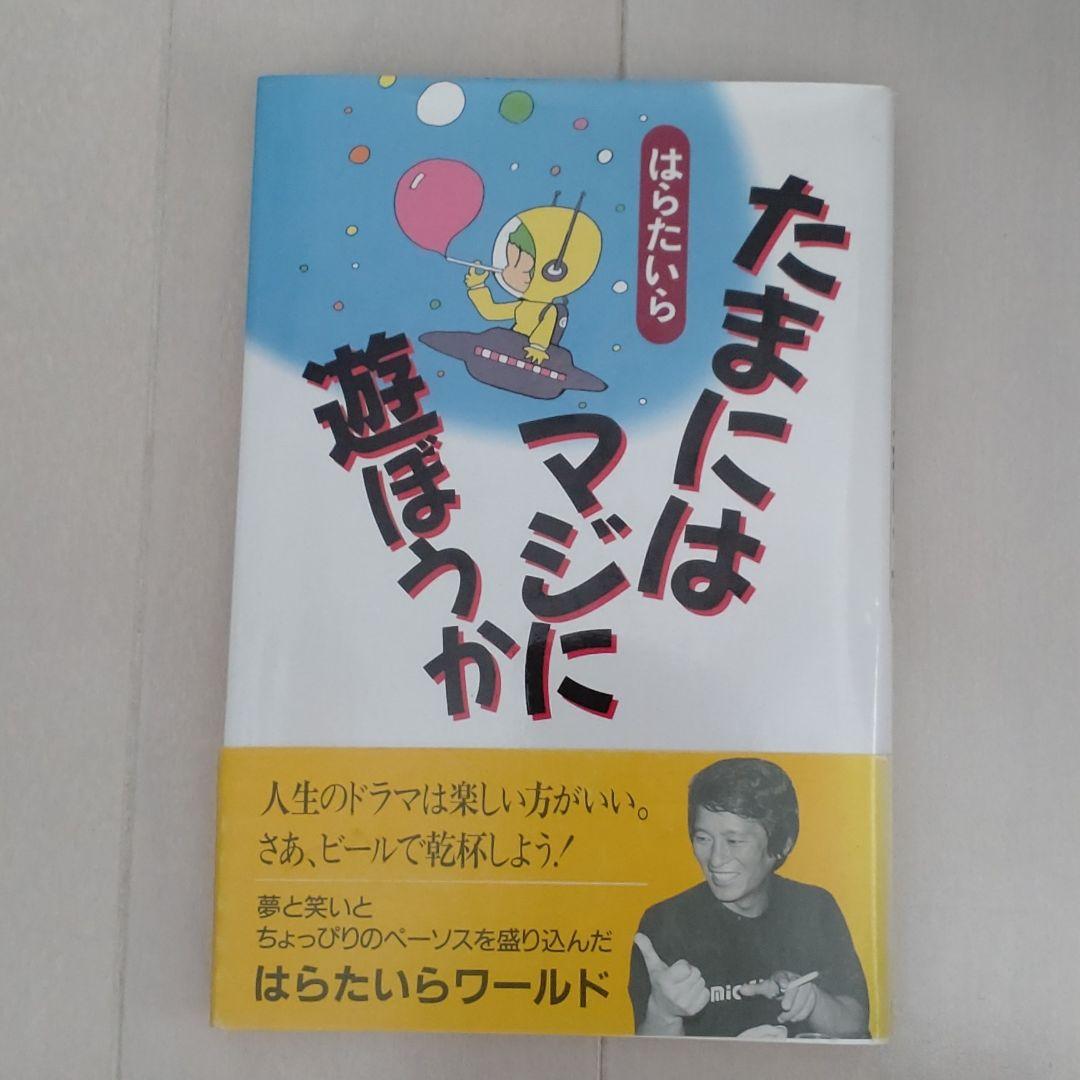 はらたいら
たまには
マジに
遊ぼうか
人生のドラマは楽しい方がいい。
さあ、ビールで乾杯しよう!
夢と笑いと
ちょっぴりのペーソスを盛り込んだ
はらたいらワールド